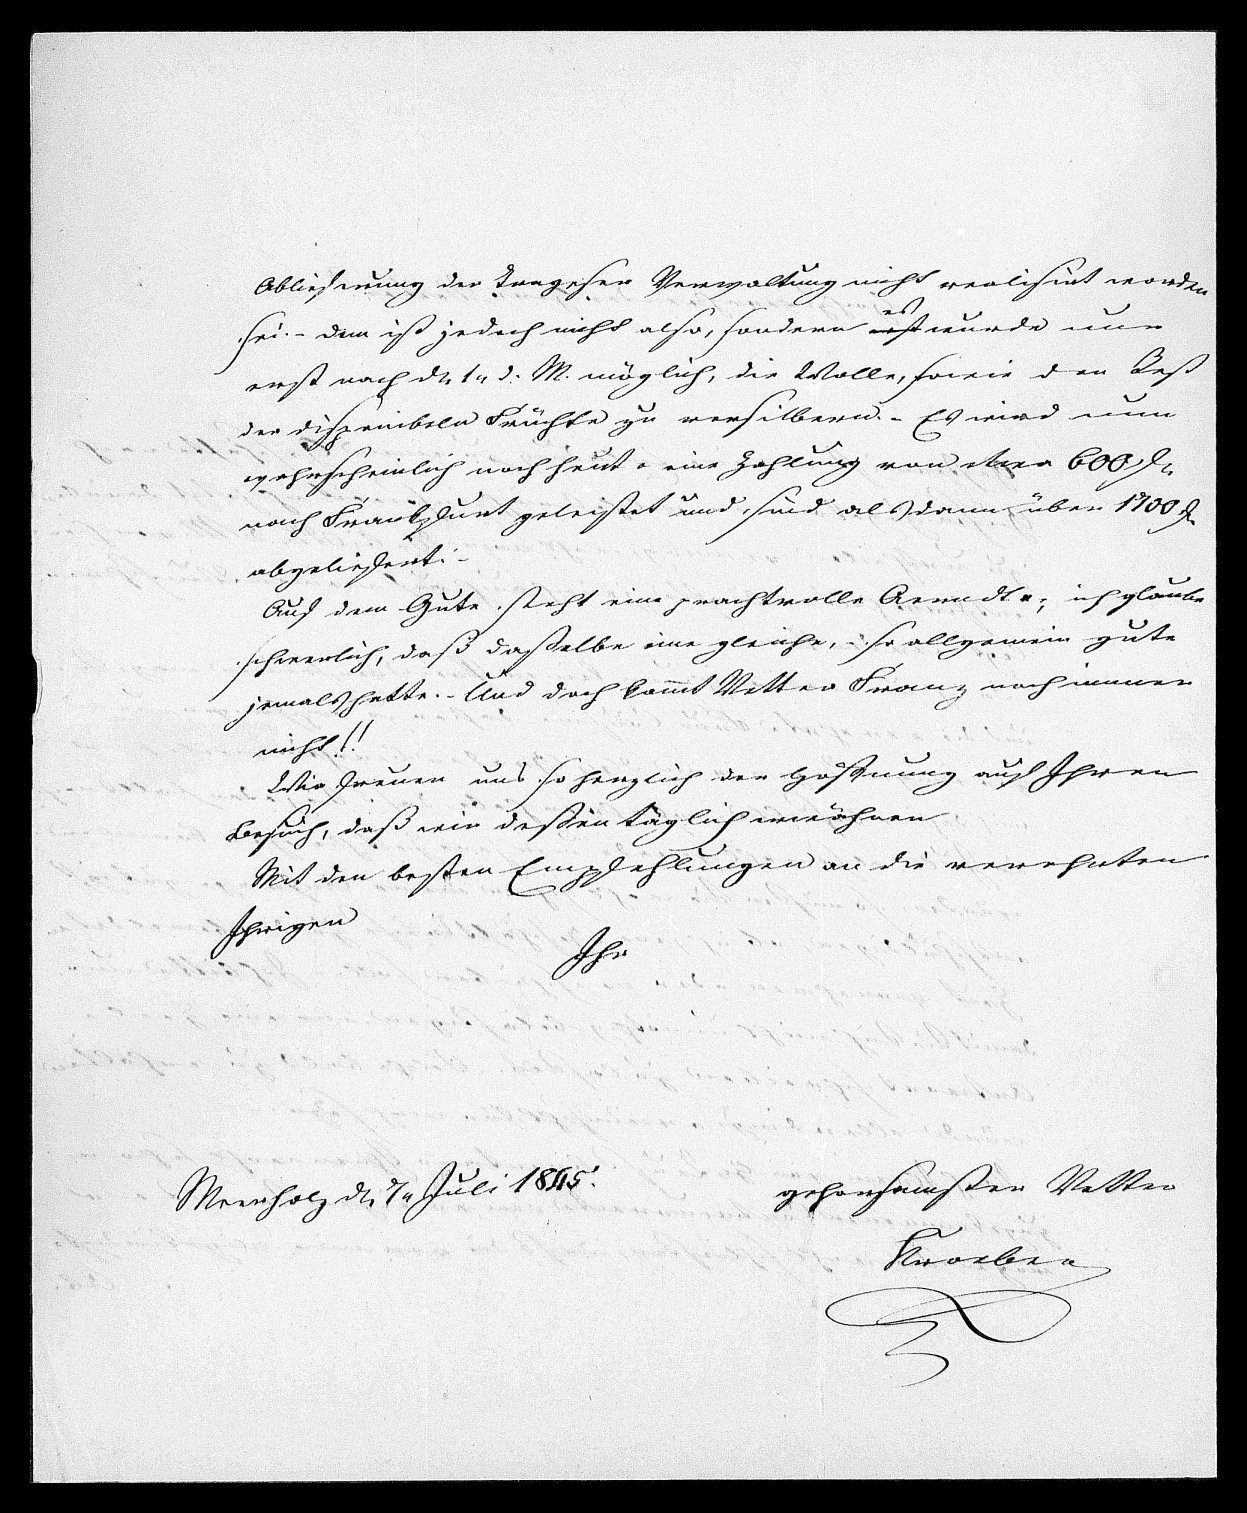 Ablieferung der Trageser Verwaltung nicht realisirt worden
sei. - Dem ist jedoch nicht also, sondern es wurde nur
erst nach dn 1n d. M. möglich, die Wolle, sowie den Rest
der disponibeln Früchte zu versilbern. - Es wird nun
wahrscheinlich noch heute eine Zahlung von etwa 600 fl.
nach Frankfurt geleistet und sind alsdann über 1700 fl.
abgeliefert. -
Auf dem Gute steht eine prachtvolle Aerndte; ich glaube
schwerlich, daß dasselbe eine gleiche, - so allgemein gute
jemals hatte. - Und doch kommt Vetter Franz noch immer
nicht!!
Wir freuen uns so herzlich der Hoffnung auf Ihren
Besuch, daß wir dessen täglich erwähnen.
Mit den besten Empfehlungen an die verehrten
Ihrigen
Ihr
Meerholz dn 7n Juli 1845.
gehorsamster Vetter
Kroeber